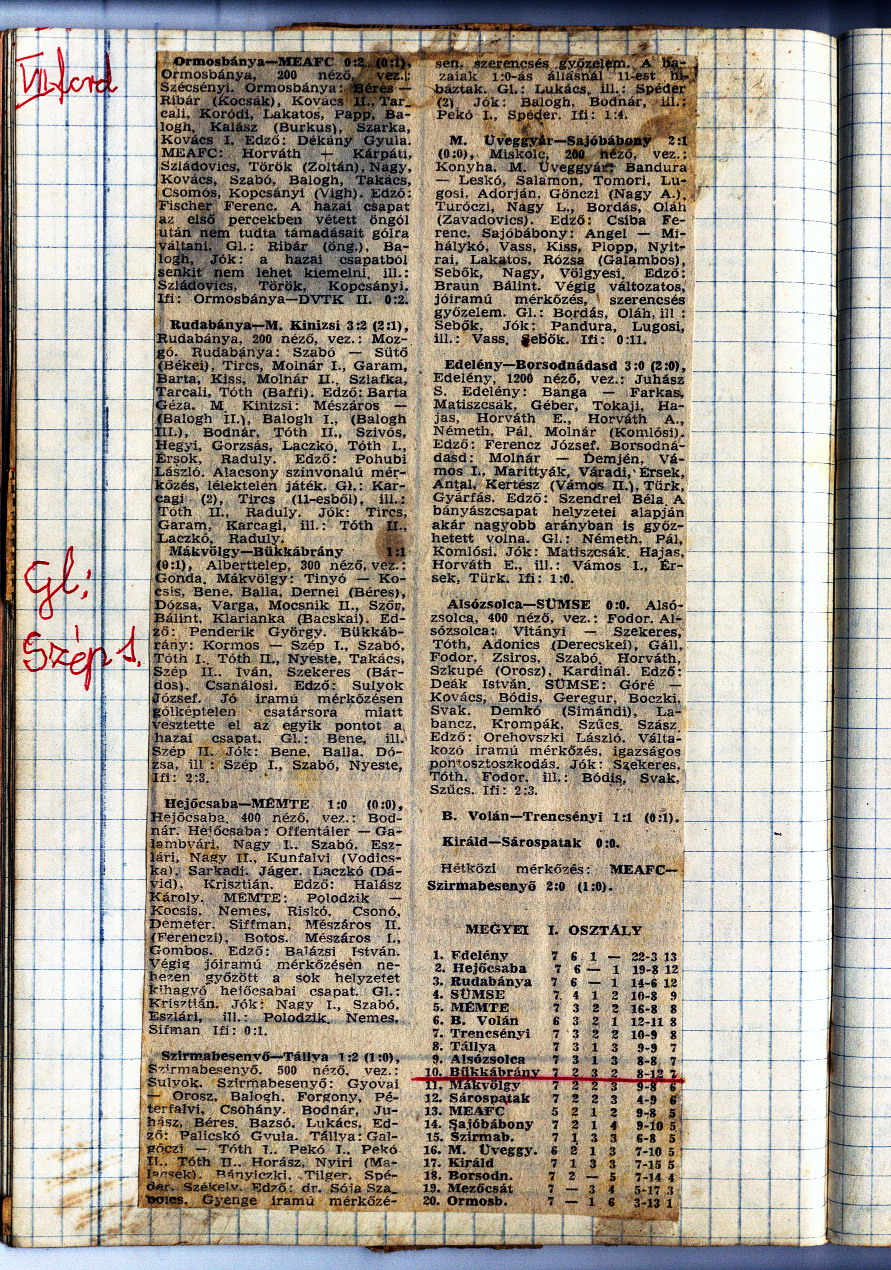 VII. ford
Gl:
Szép I.
Ormosbánya—MEAFC 0:2 (0:1),
Ormosbánya, 200 néző, vez.:
Szécsényi. Ormosbánya: Béres —
Ribár (Kocsák), Kovács II., Tar_
cali, Koródi, Lakatos, Papp, Ba-
logh, Kalász (Burkus), Szarka,
Kovács I. Edző: Dékány Gyula.
MEAFC: Horváth — Kárpáti,
Szládovics, Török (Zoltán), Nagy,
Kovács, Szabó, Balogh, Takács,
Csomós, Kopcsányi (Vigh). Edző:
Fischer Ferenc. A hazai csapat
az első percekben vétett öngól
után nem tudta támadásait gólra
váltani. Gl.: Ribár (öng.), Ba-
logh, Jók: a hazai csapatból
senkit nem lehet kiemelni, ill.:
Szládovics, Török, Kopcsányi.
Ifi: Ormosbánya—DVTK II. 0:2.
Rudabánya—M. Kinizsi 3:2 (2:1),
Rudabánya, 200 néző, vez.: Moz-
gó. Rudabánya: Szabó — Sütő
(Békei), Tircs, Molnár I., Garam,
Barta, Kiss, Molnár II., Szlafka,
Tarcali, Tóth (Baffi). Edző: Barta
Géza. M Kinizsi: Mészáros —
(Balogh II.), Balogh I., (Balogh
III.), Bodnár, Tóth II., Szivós,
Hegyi, Gorzsás, Laczkó, Tóth I.,
Érsok, Raduly. Edző: Pohubi
László. Alacsony színvonalú mér-
kőzés, lélektelen játék. Gl.: Kar-
cagi (2), Tircs (11-esből), ill.:
Tóth II., Raduly. Jók: Tircs,
Garam, Karcagi, ill.: Tóth II.,
Laczkó, Raduly.
Mákvölgy—Bükkábrány 1:1
(0:1), Alberttelep, 300 néző, vez.:
Gonda. Mákvölgy: Tinyó — Ko-
csis, Bene, Balla, Dernei (Béres),
Dózsa, Varga, Mocsnik II., Szőr,
Bálint, Klarianka (Bacskai). Ed-
ző: Penderik György. Bükkáb-
rány: Kormos — Szép I., Szabó,
Tóth I., Tóth II., Nyeste, Takács,
Szép II., Iván, Szekeres (Bár-
dos), Csanálosi. Edző: Sulyok
József. Jó iramú mérkőzésen
gólképtelen csatársora miatt
vesztette el az egyik pontot a
hazai csapat. Gl.: Bene, ill.
Szép II. Jók: Bene, Balla, Dó-
zsa, ill : Szép I., Szabó, Nyeste,
Ifi: 2:3.
Hejőcsaba—MÉMTE 1:0 (0:0),
Hejőcsaba, 400 néző, vez.: Bod-
nár. Hejőcsaba: Offentáler — Ga-
lambvári, Nagy I., Szabó, Esz-
lári, Nagy II., Kunfalvi (Vodics-
ka), Sarkadi, Jáger, Laczkó (Dá-
vid), Krisztián. Edző: Halász
Károly. MÉMTE: Polodzik —
Kocsis, Nemes, Riskó, Csonó,
Demeter, Siffman, Mészáros II.
(Ferenczi), Botos, Mészáros I.,
Gombos. Edző: Balázsi István.
Végig jóiramú mérkőzésen ne-
hezen győzött a sok helyzetet
kihagyó hejőcsabai csapat. Gl.:
Krisztián. Jók: Nagy I., Szabó,
Eszlári, ill.: Polodzik, Nemes,
Sifman Ifi: 0:1.
Szirmabesenyő—Tállya 1:2 (1:0),
Szirmabesenyő, 500 néző, vez.:
Sulyok. Szirmabesenyő: Gyovai
— Orosz, Balogh, Forgony, Pé-
terfalvi, Csohány, Bodnár, Ju-
hász, Béres, Bazsó, Lukács. Ed-
ző: Palicskó Gyula. Tállya: Gal-
góczi — Tóth I., Pekó I., Pekó
II., Tóth II., Horász, Nyiri (Ma-
lacsek), Bányiczki, Tilger, Spé-
der, Székely. Edző: dr. Sója Sza_
bolcs. Gyenge iramú mérkőzé-
sen, szerencsés győzelem. A ha-
zaiak 1:0-ás állásnál 11-est hi-
báztak. Gl.: Lukács, ill.: Spéder
(2). Jók: Balogh, Bodnár, ill.:
Pekó I., Spéder. Ifi: 1:4.
M. Üveggyár—Sajóbábony 2:1
(0:0), Miskolc, 200 néző, vez.:
Konyha. M. Üveggyár: Bandura
— Leskó, Salamon, Tomori, Lu-
gosi, Adorján, Gönczi (Nagy A.),
Turóczi, Nagy L., Bordás, Oláh
(Zavadovics). Edző: Csiba Fe-
renc. Sajóbábony: Angel — Mi-
hálykó, Vass, Kiss, Plopp, Nyit-
rai, Lakatos, Rózsa (Galambos),
Sebők, Nagy, Völgyesi. Edző:
Braun Bálint. Végig változatos,
jóiramú mérkőzés, szerencsés
győzelem. Gl.: Bordás, Oláh, ill :
Sebők, Jók: Pandura, Lugosi,
ill.: Vass, Sebők. Ifi: 0:11.
Edelény—Borsodnádasd 3:0 (2:0),
Edelény, 1200 néző, vez.: Juhász
S. Edelény: Banga — Farkas,
Matiszcsák, Géber, Tokaji, Ha-
jas, Horváth E., Horváth A.,
Németh, Pál, Molnár (Komlósi).
Edző: Ferencz József. Borsodná-
dasd: Molnár — Demjén, Vá-
mos I., Marittyák, Váradi, Érsek,
Antal, Kertész (Vámos II.), Türk,
Gyárfás. Edző: Szendrei Béla. A
bányászcsapat helyzetei alapján
akár nagyobb arányban is győz-
hetett volna. Gl.: Németh, Pál,
Komlósi. Jók: Matiszcsák, Hajas,
Horváth E., ill.: Vámos I., Ér-
sek, Türk. Ifi: 1:0.
Alsózsolca—SÜMSE 0:0. Alsó-
zsolca, 400 néző, vez.: Fodor. Al-
sózsolca: Vitányi — Szekeres,
Tóth, Adonics (Derecskei), Gáll,
Fodor, Zsiros, Szabó, Horváth,
Szkupé (Orosz), Kardinál. Edző:
Deák István. SÜMSE: Góré —
Kovács, Bódis, Geregur, Boczki,
Svak, Demkó (Simándi), La-
bancz, Krompák, Szűcs, Szász.
Edző: Orehovszki László. Válta-
kozó iramú mérkőzés, igazságos
pontosztoszkodás. Jók: Szekeres,
Tóth, Fodor, ill.: Bódis, Svak,
Szűcs. Ifi: 2:3.
B. Volán—Trencsényi 1:1 (0:1).
Királd—Sárospatak 0:0.
Hétközi mérkőzés: MEAFC—
Szirmabesenyő 2:0 (1:0).
MEGYEI I. OSZTÁLY
1. Edelény 7 6 1 — 22-3 13
2. Hejőcsaba 7 6 — 1 19-8 12
3. Rudabánya 7 6 — 1 14-6 12
4. SÜMSE 7 4 1 2 10-8 9
5. MÉMTE 7 3 2 2 16-8 8
6. B. Volán 6 3 2 1 12-11 8
7. Trencsényi 7 3 2 2 10-9 8
8. Tállya 7 3 1 3 9-9 7
9. Alsózsolca 7 3 1 3 8-8 7
10. Bükkábrány 7 2 3 2 8-12 7
11. Mákvölgy 7 2 2 3 9-8 6
12. Sárospatak 7 2 2 3 4-9 6
13. MEAFC 5 2 1 2 9-8 5
14. Sajóbábony 7 2 1 4 9-10 5
15. Szirmab. 7 1 3 3 6-8 5
16. M. Üveggy. 6 2 1 3 7-10 5
17. Királd 7 1 3 3 7-15 5
18. Borsodn. 7 2 — 5 7-14 4
19. Mezőcsát 7 — 3 4 5-17 3
20. Ormosb. 7 — 1 6 3-13 1